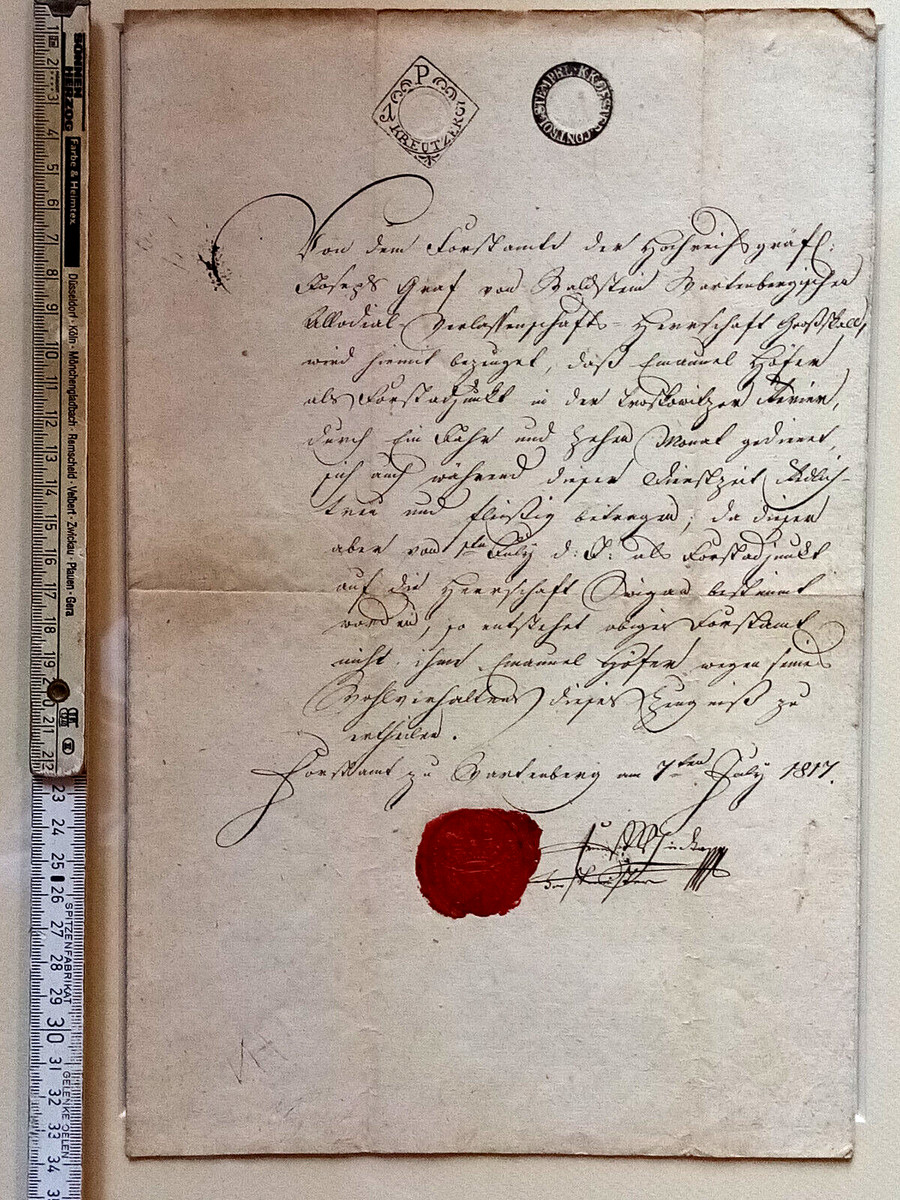 P
KREUTZER
STEMPEL K.K.
CONTROL
Von dem Forstamte der Hochreichsgräfl:
Joseph Graf von Waldstein Wartenbergischen
Allodial-Verlassenschafts-Herrschaft Großskall,
wird hiemit bezeuget, daß Emanuel Höfer
als Forstadjunkt in der Troskowitzer Revier,
durch Ein Jahr und Zehen Monat gedienet,
sich auch während dieser Dienstzeit Redlich-
treu und fleißig betragen; da dieser
aber von 1ten July d: J: als Forstadjunkt
auf die Herrschaft Swigan bestimt
worden, so entstehet obiges Forstamt
nicht, ihme Emanuel Höfer wegen seines
Wohlverhaltens dieses Zeugniß zu
ertheilen.
Forstamt zu Wartenberg am 7ten July 1817.
Forstmeister
SONNEN
HERZOG
Farbe & Heimtex
Düsseldorf · Köln · Mönchengladbach · Remscheid · Velbert · Zwickau · Plauen · Gera
1 2 3 4 5 6 7 8 9 10 11 12 13 14 15 16 17 18 19 20 21 22
23 24 25 26 27 28 29 30 31 32 33 34
SPITZENFABRIKAT
GELENKE OELEN